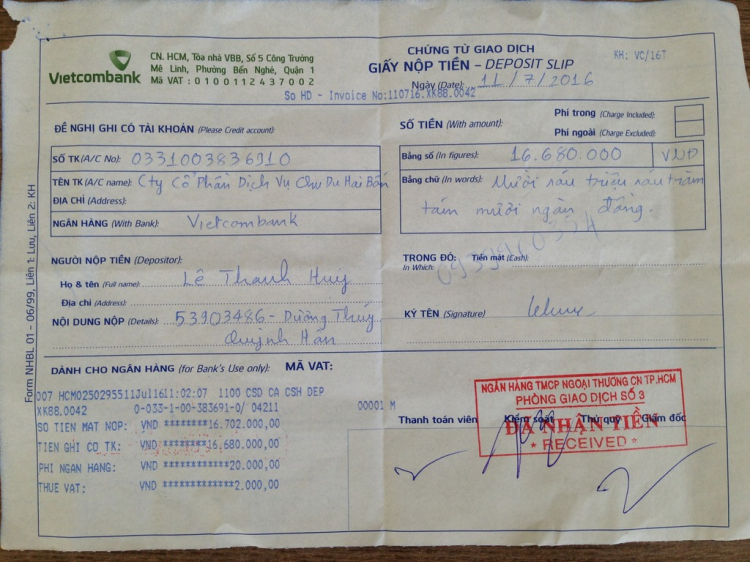 Vietcombank
CN. HCM, Tòa nhà VBB, Số 5 Công Trường
Mê Linh, Phường Bến Nghé, Quận 1
Mã VAT : 0 1 0 0 1 1 2 4 3 7 0 0 2
CHỨNG TỪ GIAO DỊCH
GIẤY NỘP TIỀN – DEPOSIT SLIP
KH: VC/16T
Ngày (Date): 11/7/2016
So HD - Invoice No:110716.XK88.0042
ĐỀ NGHỊ GHI CÓ TÀI KHOẢN (Please Credit account):
SỐ TK(A/C No): 0331003836910
TÊN TK(A/C name): Cty Cổ Phần Dịch Vụ Chu Du Hai Bốn
ĐỊA CHỈ (Address):
NGÂN HÀNG (With Bank): Vietcombank
SỐ TIỀN (With amount):
Phí trong (Charge Included):
Phí ngoài (Charge Excluded):
Bằng số (In figures): 16.680.000 VND
Bằng chữ (In words): Mười sáu triệu sáu trăm
tám mươi ngàn đồng.
NGƯỜI NỘP TIỀN (Depositor):
Họ & tên (Full name): Lê Thanh Huy
Địa chỉ (Address):
NỘI DUNG NỘP (Details): 53903486 - Dương Thúy
Quỳnh Hân
TRONG ĐÓ: Tiền mặt (Cash):
In Which:
KÝ TÊN (Signature)
Form NHBL 01 - 06/99, Liên 1: Lưu, Liên 2: KH
DÀNH CHO NGÂN HÀNG (for Bank's Use only): MÃ VAT:
007 HCM0250295511Jul1611:02:07 1100 CSD CA CSH DEP
XK88.0042 0-033-1-00-383691-0/ 04211 00001 M
SO TIEN MAT NOP: VND ********16.702.000,00
TIEN GHI CO TK: VND ********16,680.000,00
PHI NGAN HANG: VND ************20.000,00
THUE VAT: VND *************2.000,00
Thanh toán viên Kiểm soát Thủ quỹ Giám đốc
NGÂN HÀNG TMCP NGOẠI THƯƠNG CN TP.HCM
PHÒNG GIAO DỊCH SỐ 3
ĐÃ NHẬN TIỀN
* RECEIVED *